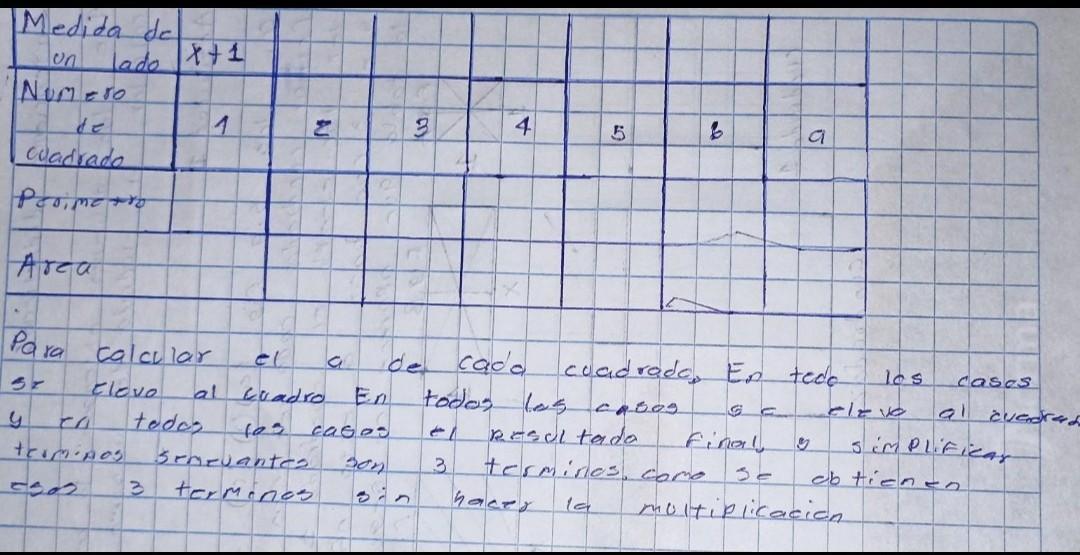 Medida de
un lado x+1
Numero
de 1 2 3 4 5 6 a
cuadrado
Perimetro
Area
Para calcular el a de cada cuadrado, En todo los casos
se elevo al cuadro En todos los casos se elevo al cuadrad
y en todos los casos el Resultado final y simplificar
terminos semeuantes son 3 terminos. como se obtienen
esos 3 terminos sin hacer la multiplicacion